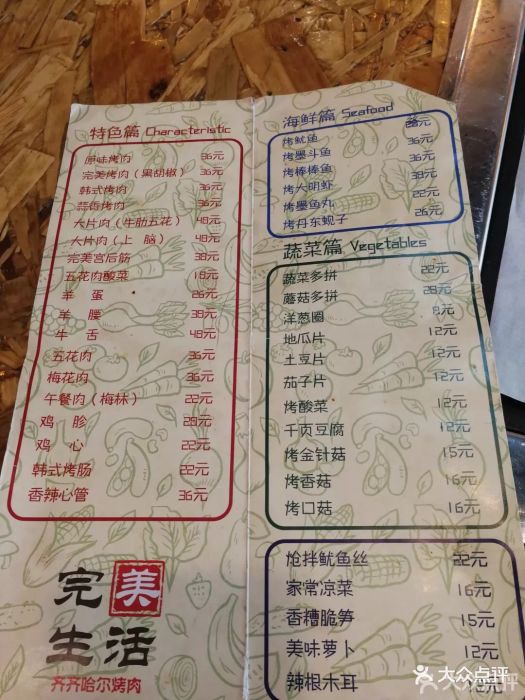 特色篇 Characteristic
原味烤肉 36元
完美烤肉（黑胡椒） 36元
韩式烤肉 36元
蒜香烤肉 36元
大片肉（牛肋五花） 48元
大片肉（上 脑） 48元
完美宫后筋 38元
五花肉酸菜 18元
羊 蛋 26元
羊 腰 38元
牛 舌 48元
五花肉 36元
梅花肉 36元
午餐肉（梅林） 22元
鸡 胗 28元
鸡 心 22元
韩式烤肠 22元
香辣心管 36元
完美
生活
齐齐哈尔烤肉
海鲜篇 Seafood
烤鱿鱼 28元
烤墨斗鱼 36元
烤棒棒鱼 36元
烤大明虾 38元
烤墨鱼丸 22元
烤丹东蚬子 26元
蔬菜篇 Vegetables
蔬菜多拼 22元
蘑菇多拼 28元
洋葱圈 8元
地瓜片 12元
土豆片 12元
茄子片 12元
烤酸菜 12元
千页豆腐 12元
烤金针菇 15元
烤香菇 16元
烤口菇 16元
炝拌鱿鱼丝 22元
家常凉菜 16元
香糟脆笋 15元
美味萝卜 12元
辣根木耳
大众点评